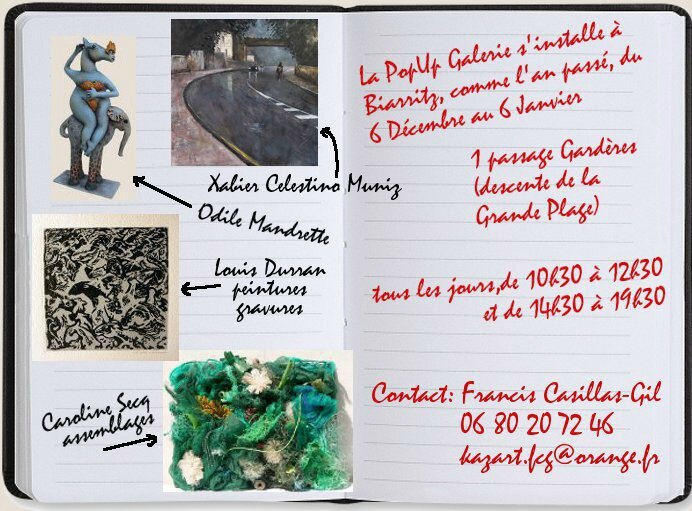 Xabier Celestino Muniz
Odile Mandrette
Louis Durran
peintures
gravures
Caroline Secq
assemblages
La PopUp Galerie s'installe à
Biarritz, comme l'an passé, du
6 Décembre au 6 Janvier
1 passage Gardères
(descente de la
Grande Plage)
tous les jours,de 10h30 à 12h30
et de 14h30 à 19h30
Contact: Francis Casillas-Gil
06 80 20 72 46
kazart.fcg@orange.fr